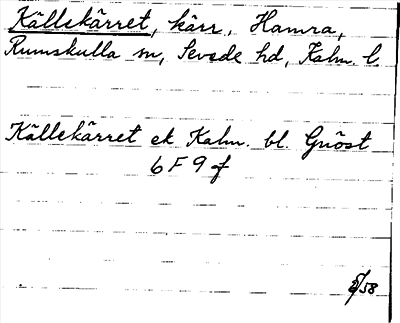 Källskärret, kärr, Hamra,
Rumskulla sn, Sevede hd, Kalm. l.
Källekärret ek Kalm. bl. Gnöst
6 F 9 f
58